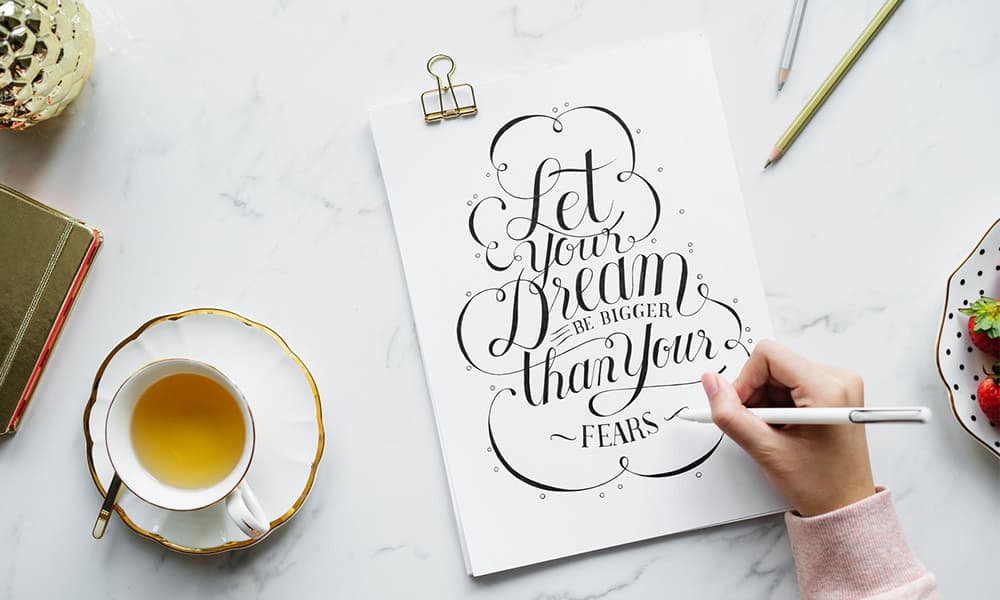 Let
Your
Dream
BE BIGGER
than Your
FEARS